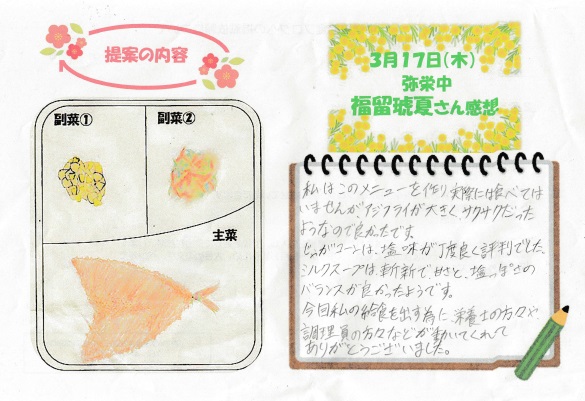 提案の内容
副菜①
副菜②
主菜
3月17日(木)
弥栄中
福留琥夏さん感想
私はこのメニューを作り実際には食べては
いませんが、アジフライが大きく、サクサクだった
ようなので良かったです。
じゃがコーンは、塩味が丁度良く評判でした。
ミルクスープは、斬新で、甘さと、塩っぱさの
バランスが良かったようです。
今回私の給食を出す為に、栄養士の方々や
調理員の方々などが動いてくれて
ありがとうございました。